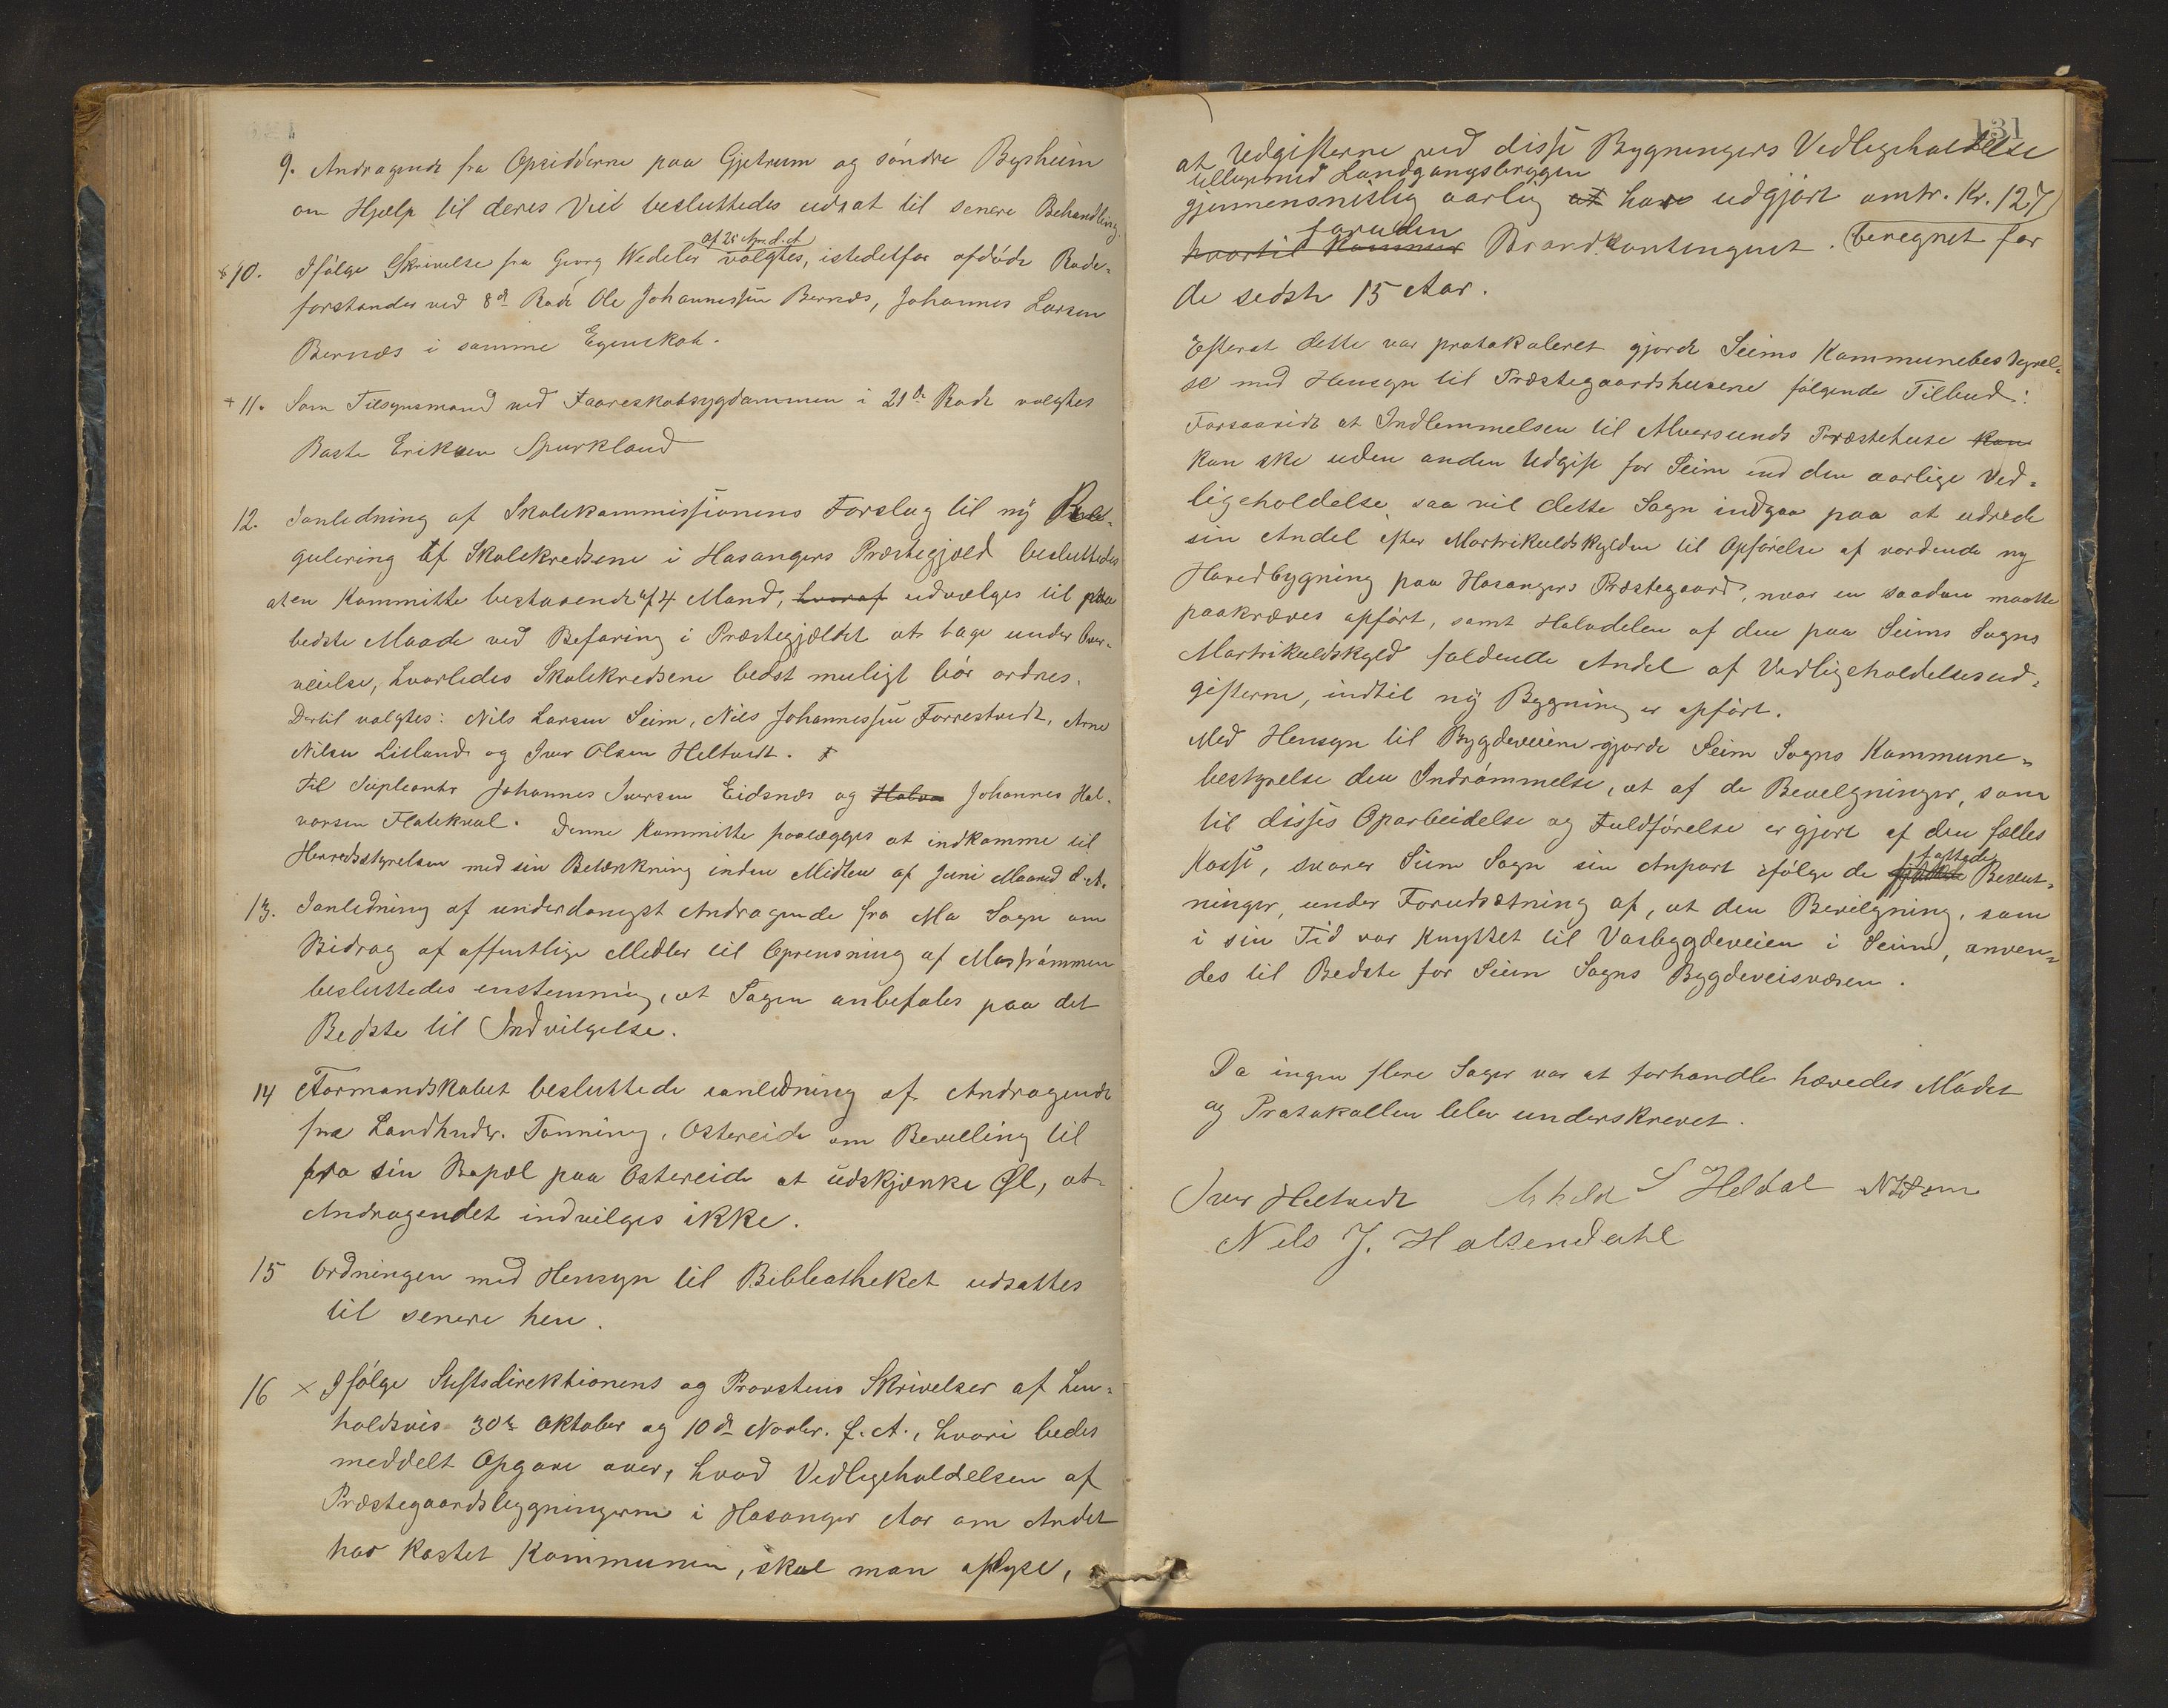 9. Andragende fra Opsidderne paa Gjetrum og söndre Bysheim
om Hjælp til deres Vei besluttedes udsat til senere Behandling.
10. Ifölge Skrivelse fra Georg Wedeler af 25 Apr. d. A. valgtes, istedetfor afdöde Rode-
forstander ved 8de Rode Ole Johannessen Bernæs, Johannes Larsen
Bernæs i samme Egenskab.
+ 11. Som Tilsynsmand ved Faareskabsygdommen i 21de Rode valgtes
Baste Eriksen Spurkland
12. Ianledning af Skolekommissionens Forslag til ny Re-
gulering af Skolekredsene i Hosangers Præstegjæld besluttedes
at en Kommitte bestaaende af 4 Mand, hvoraf udvælges til paa
bedste Maade ved Befaring i Præstegjældet at tage under Over-
veielse, hvorledes Skolekredsene bedst muligt bör ordnes.
Dertil valgtes: Nils Larsen Seim, Nils Johannessen Forrestvedt, Arne
Nilsen Lisland og Iver Olsen Heltvedt.
Til Supleanter Johannes Iversen Eidsnes og Halvo Johannes Hal-
vorsen Flatekval. Denne Kommitte paalægges at indkomme til
Herredsstyrelsen med sin Betænkning inden Midten af Juni Maaned d. A.
13. Ianledning af underdanigst Andragende fra Mo Sogn om
Bidrag af offentlige Midler til Oprensning af Moströmmen
besluttedes enstemmig, at Sagen anbefales paa det
Bedste til Indvilgelse.
14 Formandskabet besluttede ianledning af Andragende
fra Landhndlr. Tonning, Ostereide om Bevilling til
fra sin Bopæl paa Ostereide at udskjænke Øl, at
Andragendet indvilges ikke.
15 Ordningen med Hensyn til Bibliotheket udsattes
til senere hen.
16 × Ifölge Stiftsdirektionens og Provstens Skrivelser af hen-
holdsvis 30te Oktober og 10de Novbr. f. A., hvori bedes
meddelt Opgave over, hvad Vedligeholdelsen af
Præstegaardsbygningerne i Hosanger Aar om Andet
har kostet Kommunen, skal man oplyse,
131
at Udgifterne ved disse Bygningers Vedligeholdelse
tilligemed Landgangsbryggen
gjennemsnitlig aarlig at have udgjort omtr. Kr. 127
foruden
hvortil kommer Brandkontingent. (beregnet for
de sidste 15 Aar.
Efterat dette var protokoleret gjorde Seims Kommunebestyrel-
se med Hensyn til Præstegaardshusene fölgende Tilbud:
Forsaavidt at Indlemmelsen til Alversunds Præstehuse kan
kan ske uden anden Udgift for Seim end den aarlige Ved-
ligeholdelse, saa vil dette Sogn indgaa paa at udrede
sin Andel efter Martrikulskylden til Opförelse af vordende ny
Hovedbygning paa Hosangers Præstegaard, naar en saadan maatte
paakræves opfört, samt Halvdelen af den paa Seims Sogns
Martrikulskyld faldende Andel af Vedligeholdelsesud-
gifterne, indtil ny Bygning er opfört.
Med Hensyn til Bygdeveiene gjorde Seim Sogns Kommune-
bestyrelse den Indrömmelse, at af de Bevilgninger, som
til disses Oparbeidelse og Fuldförelse er gjort af den fælles
Kasse, svarer Seim Sogn sin Anpart ifölge de fattede Beslut-
ninger, under Forudsætning af, at den Bevilgning, som
i sin Tid var knyttet til Vasbygdeveien i Seim, anven-
des til Bedste for Seim Sogns Bygdeveisvæsen.
Da ingen flere Sager var at forhandle hævedes Mödet
og Protokollen blev underskrevet.
Iver Heltvedt S Heldal
Nils J. Halsendahl